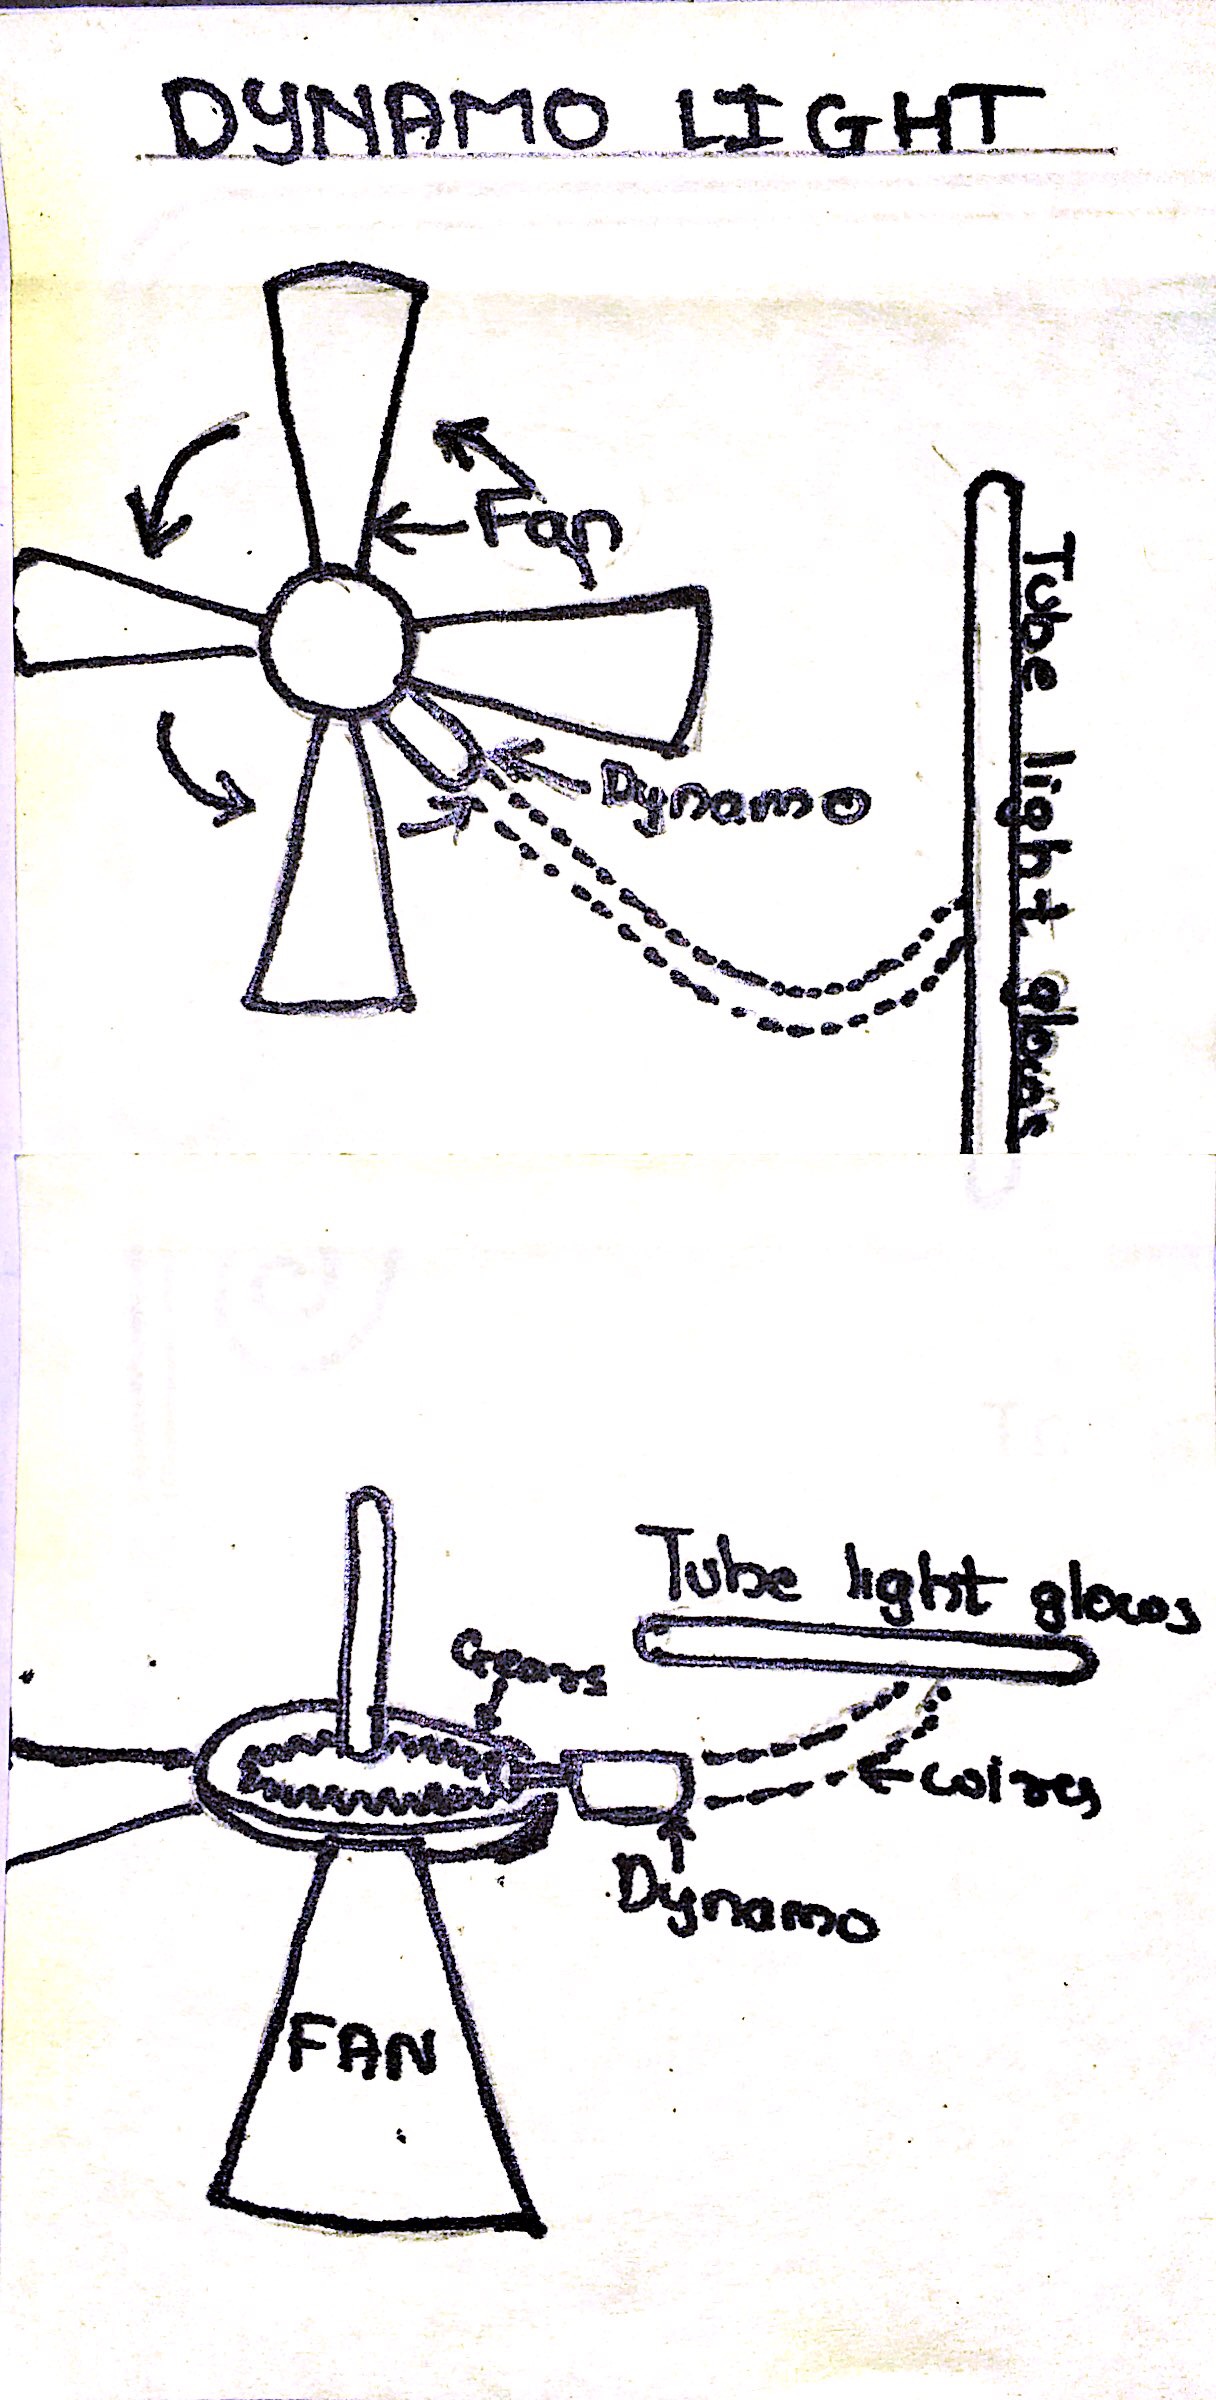 DYNAMO LIGHT
Fan
Tube light glows
Dynamo
Tube light glows
Gears
wires
Dynamo
FAN